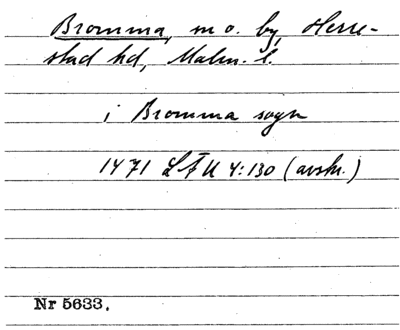 Bromma, sn o. by, Herre-
stad hd, Malm. l.
i Bromma sogn
1471 LÄU 4:130 (avskr.)
Nr 5633.